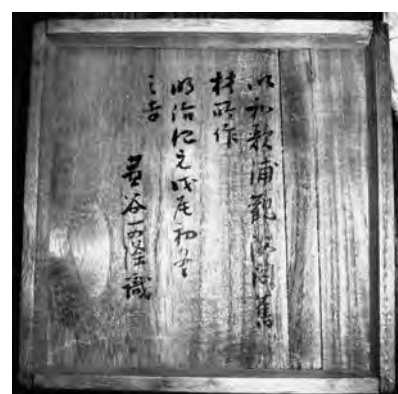 以和歌浦觀海閣舊
材所作
明治紀元戊辰初冬
之吉
谷 識